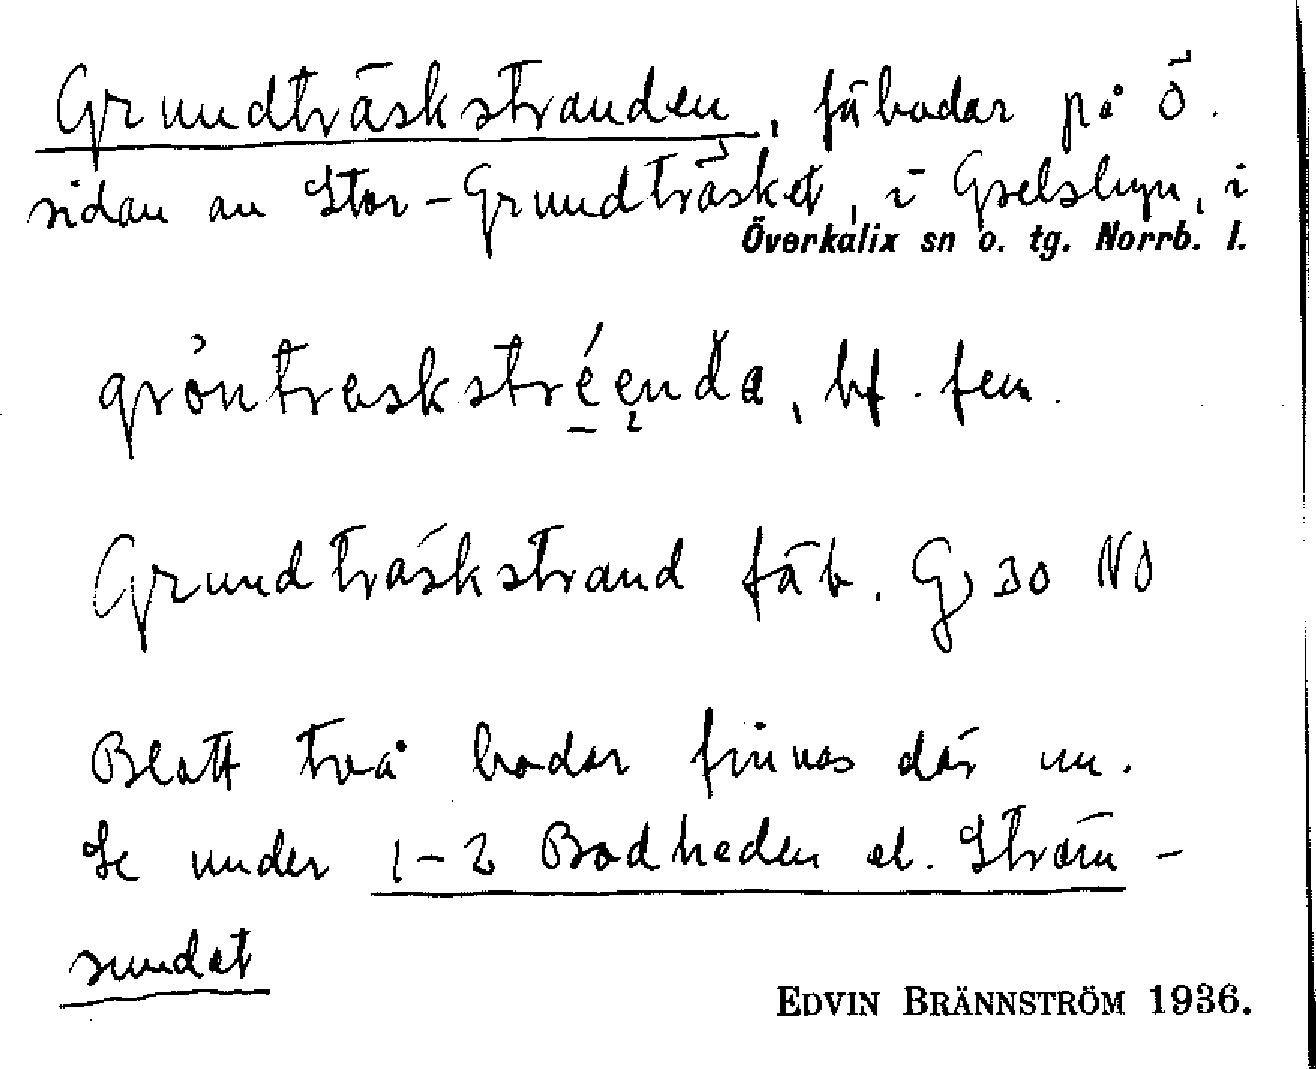 Grundträskstranden, fäbodar på ö.
sidan au Stor-Grundträsket, i Gyelsbyn, i
Överkalix sn o. tg. Norrb. l.
gròntraskstréenda, bf. fem.
Grundträskstrand fäb. G 30 NO
Blott två bodar finnas där nu.
Se under 1-2 Bodheden el. Ström-
sundet
EDVIN BRÄNNSTRÖM 1936.